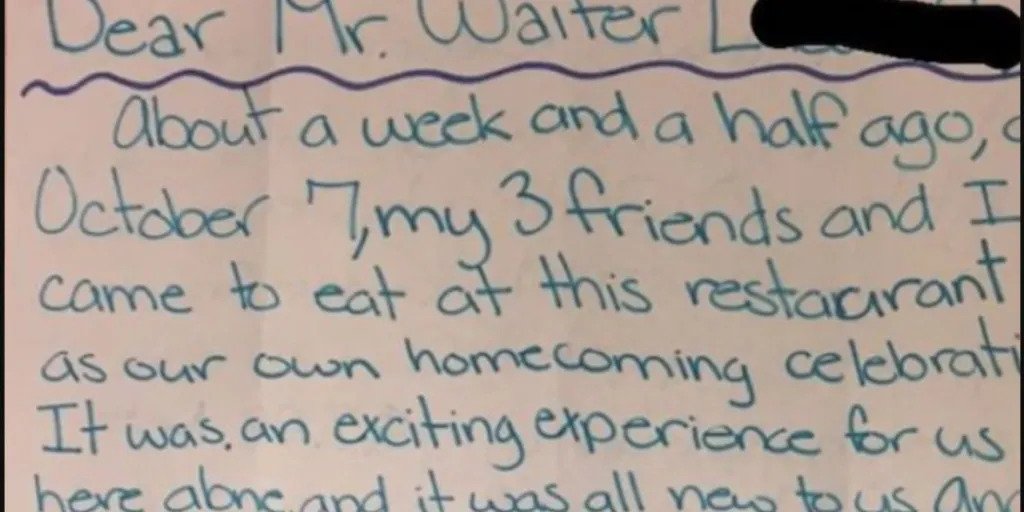 Dear Mr. Waiter L
About a week and a half ago,
October 7, my 3 friends and I
came to eat at this restaurant
as our own homecoming celebrati
It was. an exciting experience for us
here alone and it was all new to us and